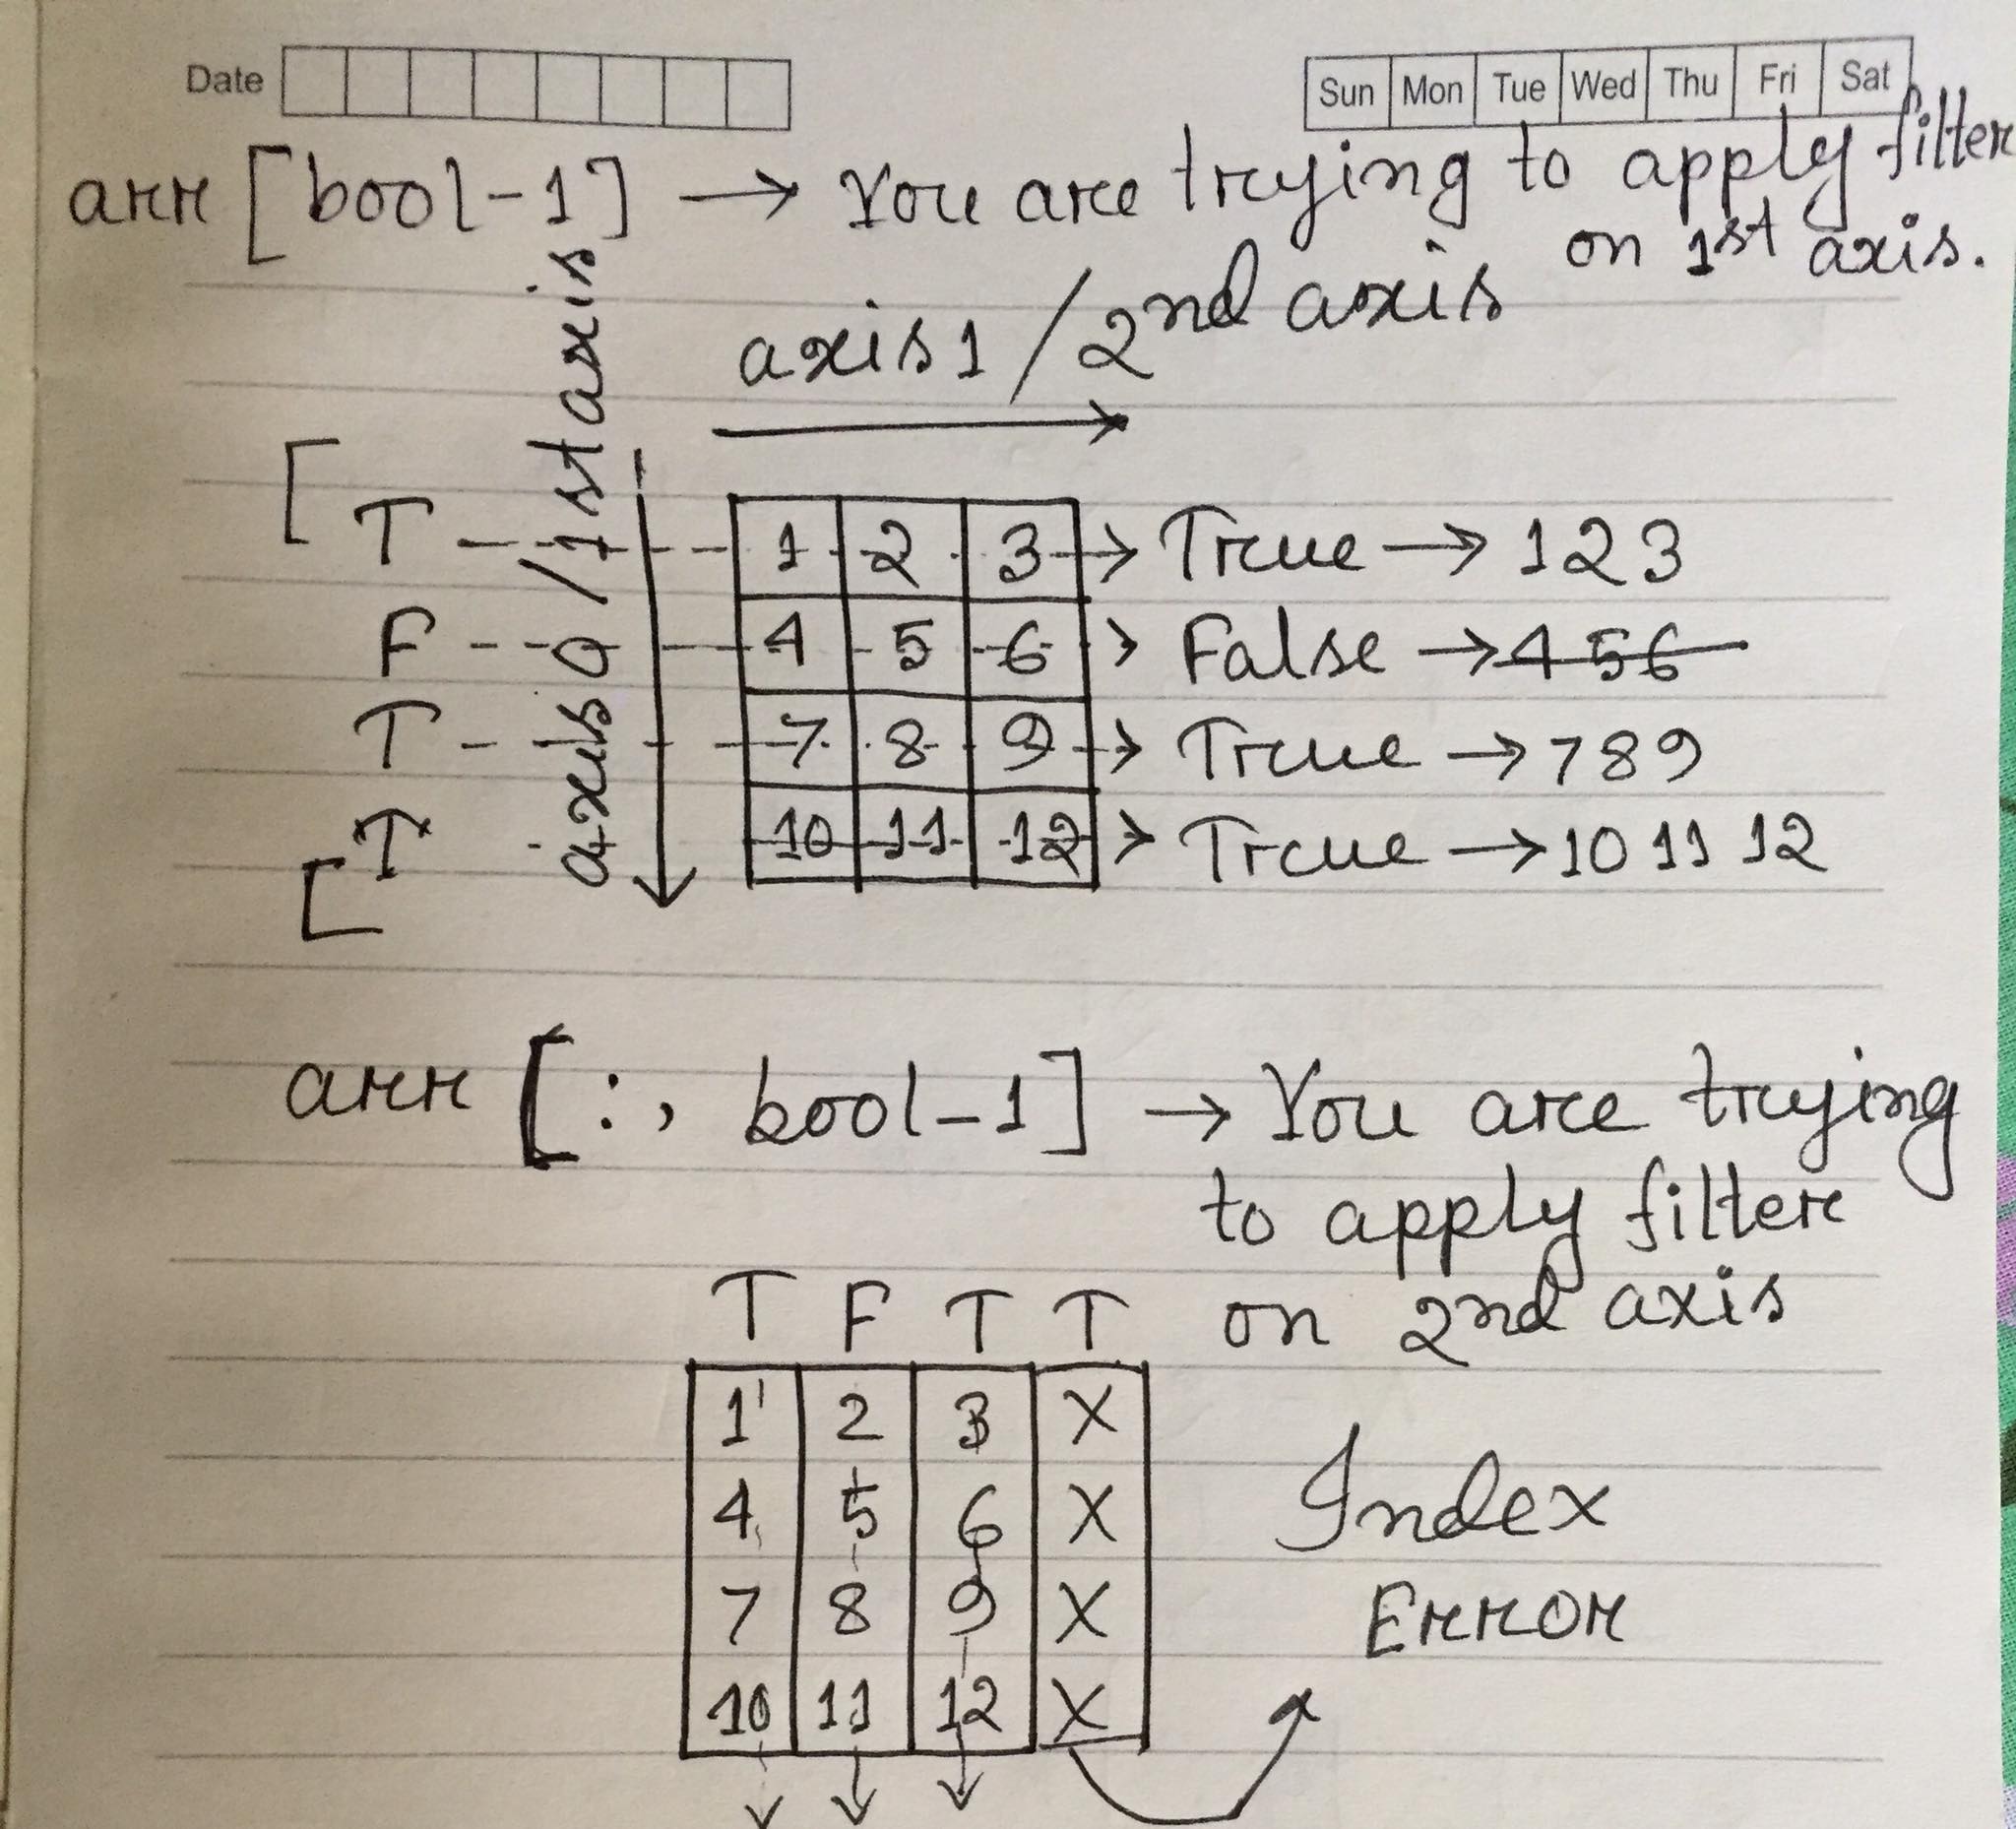 Date
Sun Mon Tue Wed Thu Fri Sat
arr [bool-1] → You are trying to apply filter
on 1st axis.
axis 1 / 2nd axis
axis 0 / 1st axis
[
T 1 2 3 → True → 1 2 3
F 4 5 6 > False → 4 5 6
T 7 8 9 → True → 7 8 9
T 10 11 12 > True → 10 11 12
[
arr [:, bool-1] → You are trying
to apply filter
on 2nd axis
T F T T
1 2 3 X
4 5 6 X
7 8 9 X
10 11 12 X
Index
Error